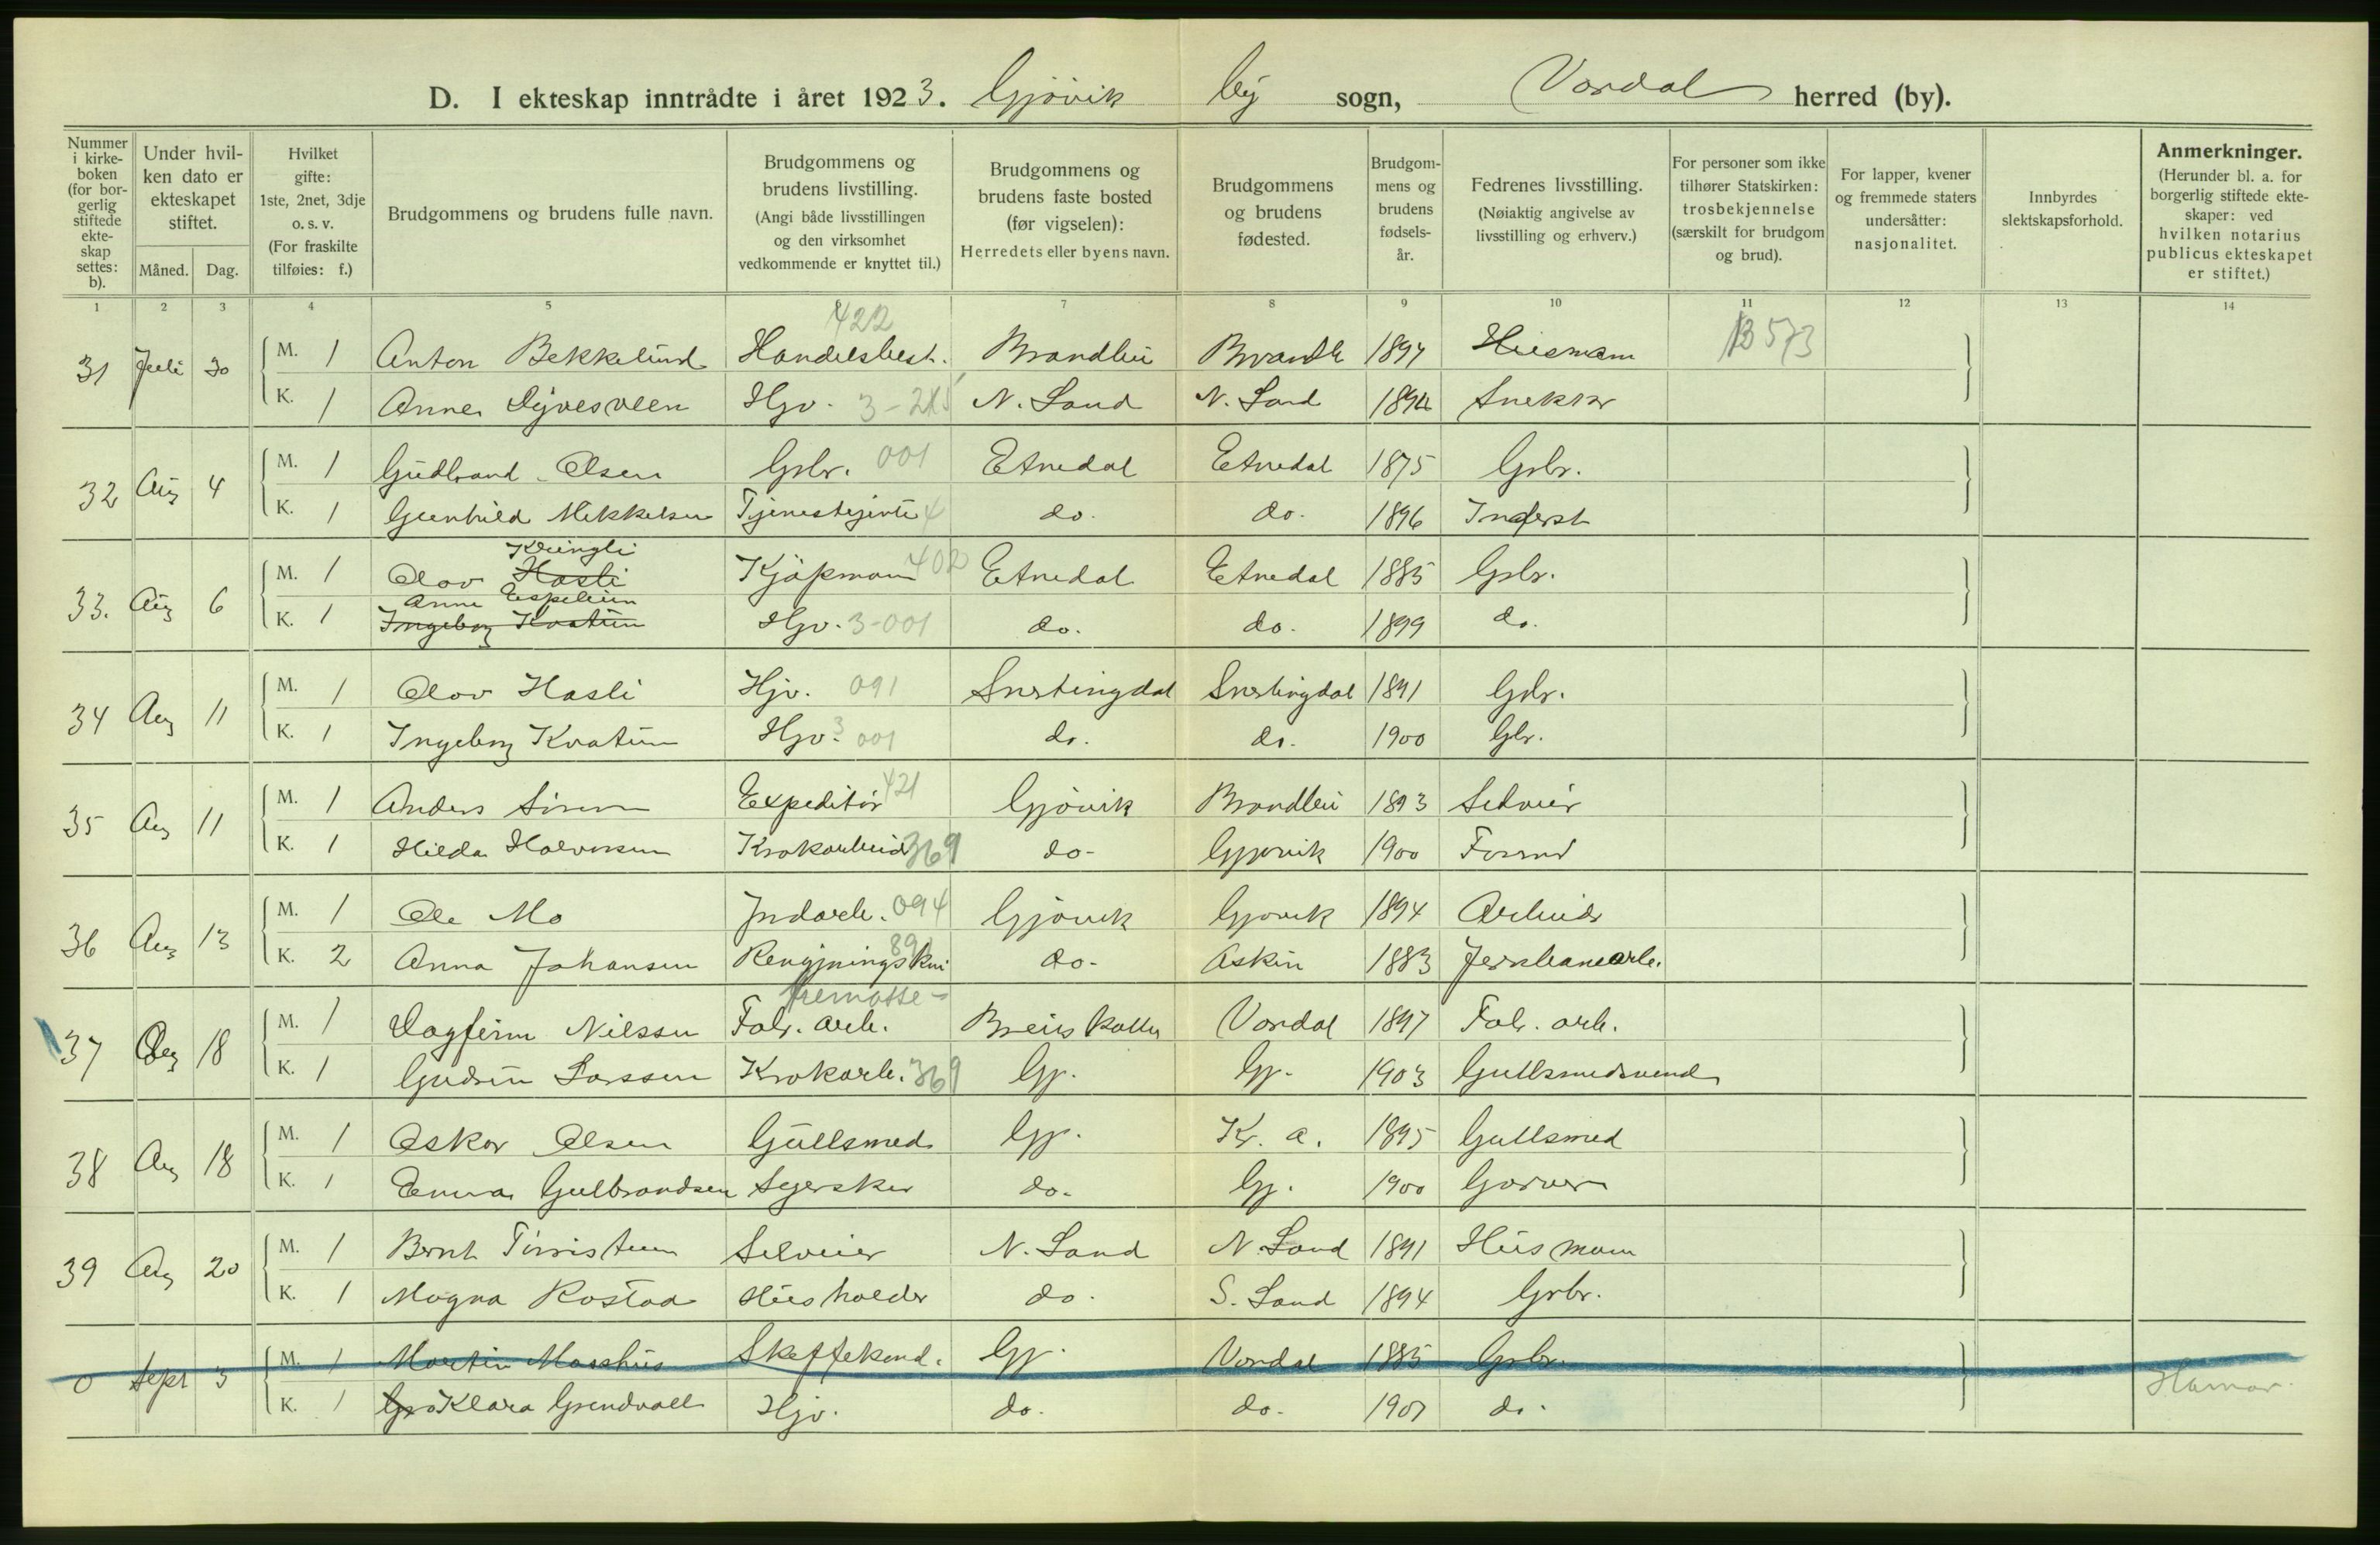 D. I ekteskap inntrådte i året 1923. Gjövik by sogn, Vardal herred (by).
Nummer i kirke-boken (for bor-gerlig stiftede ekte-skap settes: b).
Under hvil-ken dato er ekteskapet stiftet.
Måned. Dag.
Hvilket gifte: 1ste, 2net, 3dje o. s. v. (For fraskilte tilføies: f.)
Brudgommens og brudens fulle navn.
Brudgommens og brudens livstilling. (Angi både livsstillingen og den virksomhet vedkommende er knyttet til.)
Brudgommens og brudens faste bosted (før vigselen): Herredets eller byens navn.
Brudgommens og brudens fødested.
Brudgom-mens og brudens fødsels-år.
Fedrenes livsstilling. (Nøiaktig angivelse av livsstilling og erhverv.)
For personer som ikke tilhører Statskirken: trosbekjennelse (særskilt for brudgom og brud).
For lapper, kvener og fremmede staters undersåtter: nasjonalitet.
Innbyrdes slektskapsforhold.
Anmerkninger. (Herunder bl. a. for borgerlig stiftede ekte-skaper: ved hvilken notarius publicus ekteskapet er stiftet.)
1 2 3 4 5 7 8 9 10 11 12 13 14
422
31 Juli 30 M. 1 Anton Bekkelund Handelsbest. Brandbu Brandb 1894 Husmann
K. 1 Anne Dyvesveen Hjv. N. Land N. Land 1894 Snekker
32 Aug 4 M. 1 Gudbrand Olsen Grbr. 001 Etnedal Etnedal 1875 Grbr.
K. 1 Gunhild Mikkelsen Tjenestejente 4 do. do. 1896 Inderst
Kringli
33. Aug 6 M. 1 Olav Hasli Kjöpmann 402 Etnedal Etnedal 1885 Grbr.
Anne Espelien
K. 1 Ingeborg Kvatum Hjv. 3-001 do. do. 1899 do.
34 Aug 11 M. 1 Olav Hasli Hjv. 091 Snertingdal Snertingdal 1891 Grbr.
K. 1 Ingeborg Kvatum Hjv. 3 001 do. do. 1900 Gbr.
35 Aug 11 M. 1 Anders Expeditör 421 Gjövik Brandbu 1893 Selveier
K. 1 Hilda Halvorsen Krokarbeid 369 do- Gjøvik 1900
36 Aug 13 M. 1 Ole Mo Indarb. 094 Gjövik Gjøvik 1894 Arbeider
K. 2 Anna Johansen 89 do- Askim 1883 Jernbanearb.
37 Aug 18 M. 1 Dagfinn Nilssen Fabr. arb. Breiskallen Vardal 1897 Fabr. arb.
K. 1 Gudrun Larssen Krokarb. 369 Gj. Gj. 1903 Gullsmedsvend
38 Aug 18 M. 1 Oskar Olsen Gullsmed Gj. Kr. a. 1895 Gullsmed
K. 1 Emma Gulbrandsen Syerske do. Gj. 1900 Garver
39 Aug 20 M. 1 Bernt Selveier N. Land N. Land 1891 Husmann
K. 1 Magna Rostad Husholder do. S. Land 1894 Grbr.
0 Sept 3 M. 1 Martin Maashus Gj. Vardal 1885 Grbr.
K. 1 Klara Grendvall Hjv. do. do. 1901 do. Hamar.